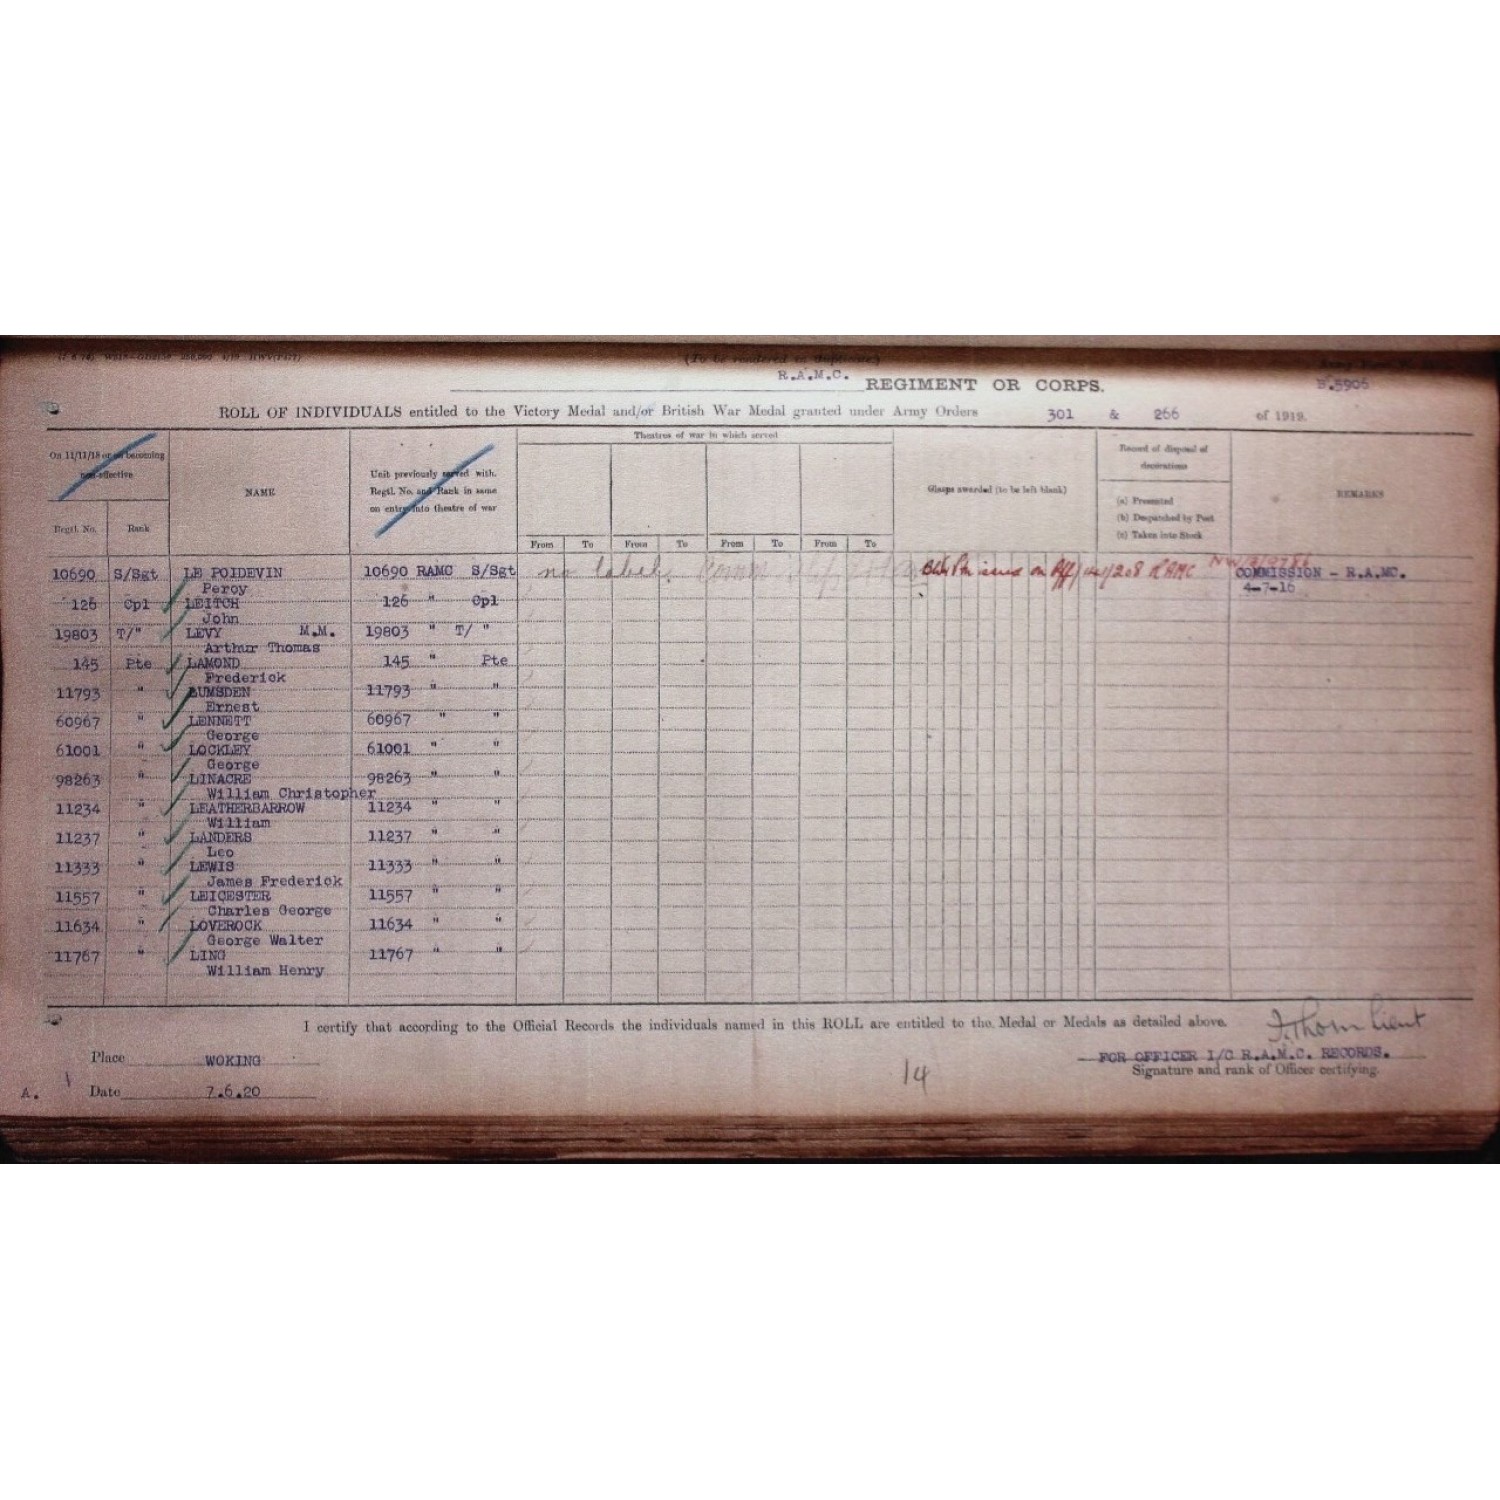 (To be rendered in duplicate.)
B.5905
R.A.M.C. REGIMENT OR CORPS.
ROLL OF INDIVIDUALS entitled to the Victory Medal and/or British War Medal granted under Army Orders 301 & 266 of 1919.
On 11/11/18 or on becoming non-effective
Regtl. No. Rank
NAME
Unit previously served with.
Regtl. No. and Rank in same
on entry into theatre of war
Theatres of war in which served
From To From To From To From To
Clasps awarded (to be left blank)
Record of disposal of
decorations
(a) Presented
(b) Despatched by Post
(c) Taken into Stock
REMARKS
10690 S/Sgt LE POIDEVIN 10690 RAMC S/Sgt no label. issued on RAMC COMMISSION - R.A.MC.
Percy 4-7-16
126 Cpl LEITCH 126 " Cpl
John
19803 T/" LEVY M.M. 19803 " T/ "
Arthur Thomas
145 Pte LAMOND 145 " Pte
Frederick
11793 " LUMSDEN 11793 " "
Ernest
60967 " LENNETT 60967 " "
George
61001 " LOCKLEY 61001 " "
George
98263 " LINACRE 98263 " "
William Christopher
11234 " LEATHERBARROW 11234 " "
William
11237 " LANDERS 11237 " "
Leo
11333 " LEWIS 11333 " "
James Frederick
11557 " LEICESTER 11557 " "
Charles George
11634 " LOVEROCK 11634 " "
George Walter
11767 " LING 11767 " "
William Henry
I certify that according to the Official Records the individuals named in this ROLL are entitled to the Medal or Medals as detailed above.
Place WOKING
FOR OFFICER I/C R.A.M.C. RECORDS.
Signature and rank of Officer certifying.
14
A. Date 7.6.20